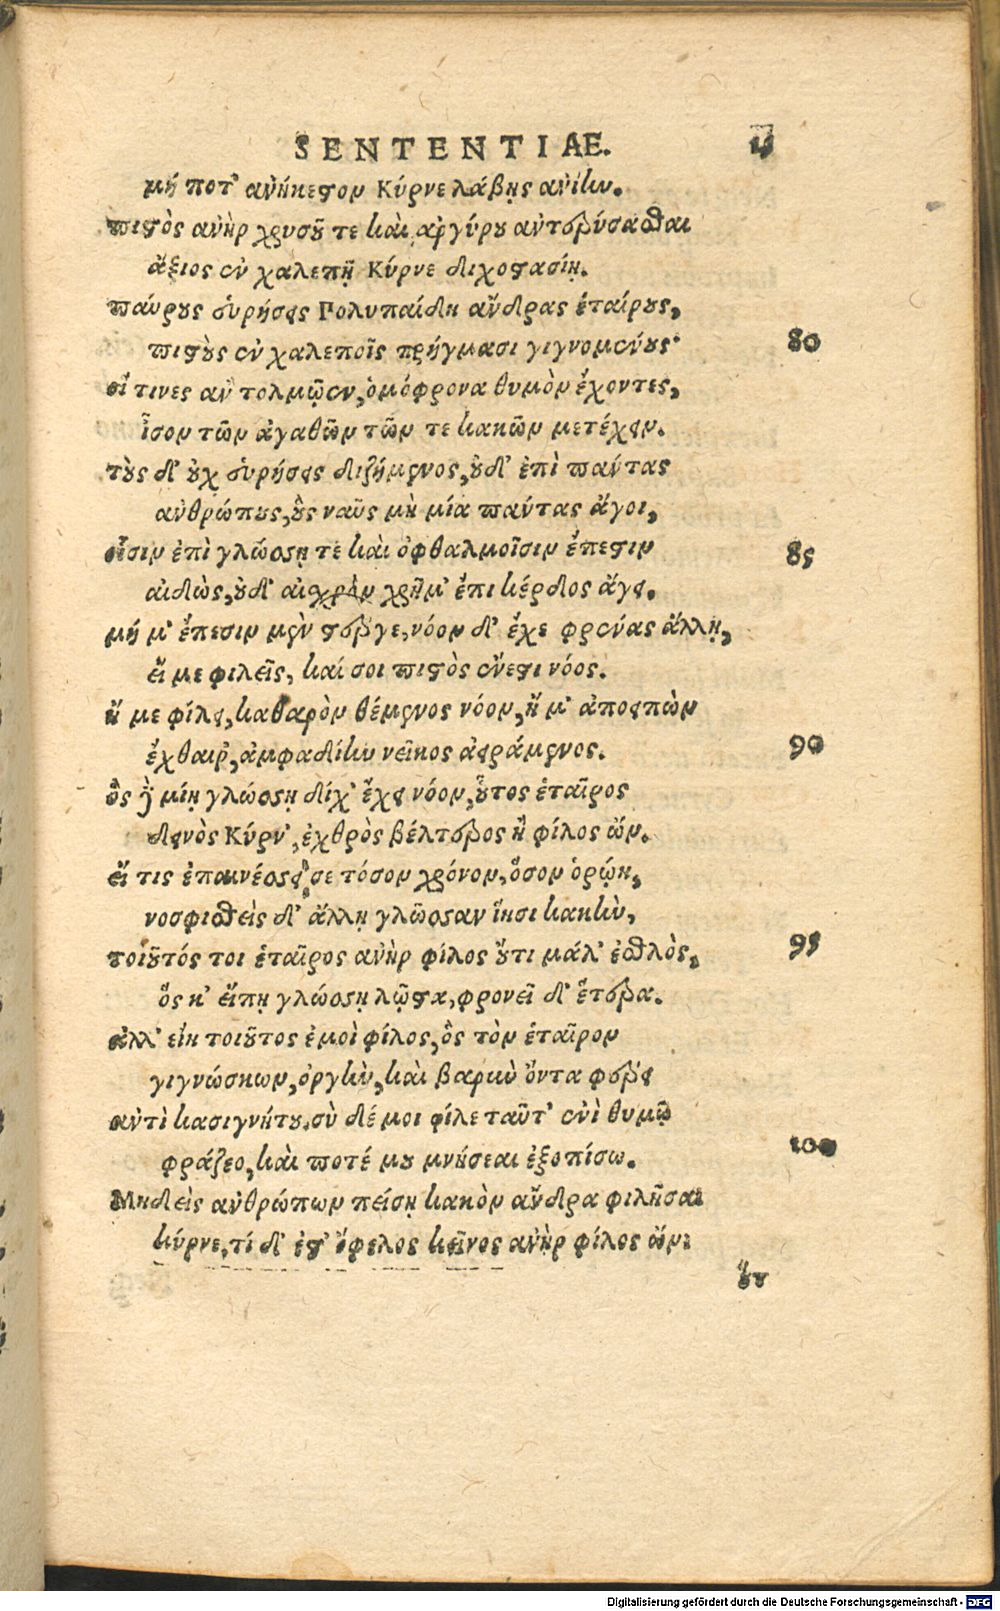 SENTENTIAE. 11
μή ποτ' ἀνήκεστον Κύρνε λάβῃς ἀνίην.
πιστὸς ἀνὴρ χρυσοῦ τε καὶ ἀργύρου ἀντερύσασθαι
ἄξιος ἐν χαλεπῇ Κύρνε διχοστασίῃ.
παύρους εὑρήσεις Πολυπαίδη ἄνδρας ἑταίρους,
πιστοὺς ἐν χαλεποῖς πρήγμασι γιγνομένους· 80
οἵ τινες ἂν τολμῷεν, ὁμόφρονα θυμὸν ἔχοντες,
ἶσον τῶν ἀγαθῶν τῶν τε κακῶν μετέχειν.
τοὺς δ' οὐχ εὑρήσεις διζήμενος, οὐδ' ἐπὶ πάντας
ἀνθρώπους, οὓς ναῦς μὴ μία πάντας ἄγοι,
οἷσιν ἐπὶ γλώσσῃ τε καὶ ὀφθαλμοῖσιν ἔπεστιν 85
αἰδὼς, οὐδ' αἰχρὸν χρῆμ' ἔπι κέρδος ἄγει.
μή μ' ἔπεσιν μὲν στέργε, νόον δ' ἔχε φρένας ἄλλῃ,
εἴ με φιλεῖς, καί σοι πιστὸς ἔνεστι νόος.
ἤ με φίλει, καθαρὸν θέμενος νόον, ἤ μ' ἀποειπὼν
ἔχθαιρ', ἀμφαδίην νεῖκος ἀειράμενος. 90
ὃς δὲ μίῃ γλώσσῃ δίχ' ἔχει νόον, οὗτος ἑταῖρος
δεινὸς Κύρν', ἐχθρὸς βέλτερος ἢ φίλος ὤν.
εἴ τις ἐπαινέσσει σε τόσον χρόνον, ὅσον ὁρῴη,
νοσφισθεὶς δ' ἄλλῃ γλῶσσαν ἵησι κακὴν,
τοιοῦτός τοι ἑταῖρος ἀνὴρ φίλος οὔτι μάλ' ἐσθλὸς, 95
ὅς κ' εἴπῃ γλώσσῃ λῷστα, φρονεῖ δ' ἕτερα.
ἀλλ' εἴη τοιοῦτος ἐμοὶ φίλος, ὃς τὸν ἑταῖρον
γιγνώσκων, ὀργὴν, καὶ βαρὺν ὄντα φέρει
ἀντὶ κασιγνήτου, σὺ δέ μοι φίλε ταῦτ' ἐνὶ θυμῷ
φράζεο, καὶ ποτέ μου μνήσεαι ἐξοπίσω. 100
Μηδεὶς ἀνθρώπων πείσῃ κακὸν ἄνδρα φιλῆσαι
κύρνε, τί δ' ἔστ' ὄφελος κεῖνος ἀνὴρ φίλος ὤν;
οὔτ
Digitalisierung gefördert durch die Deutsche Forschungsgemeinschaft - DFG